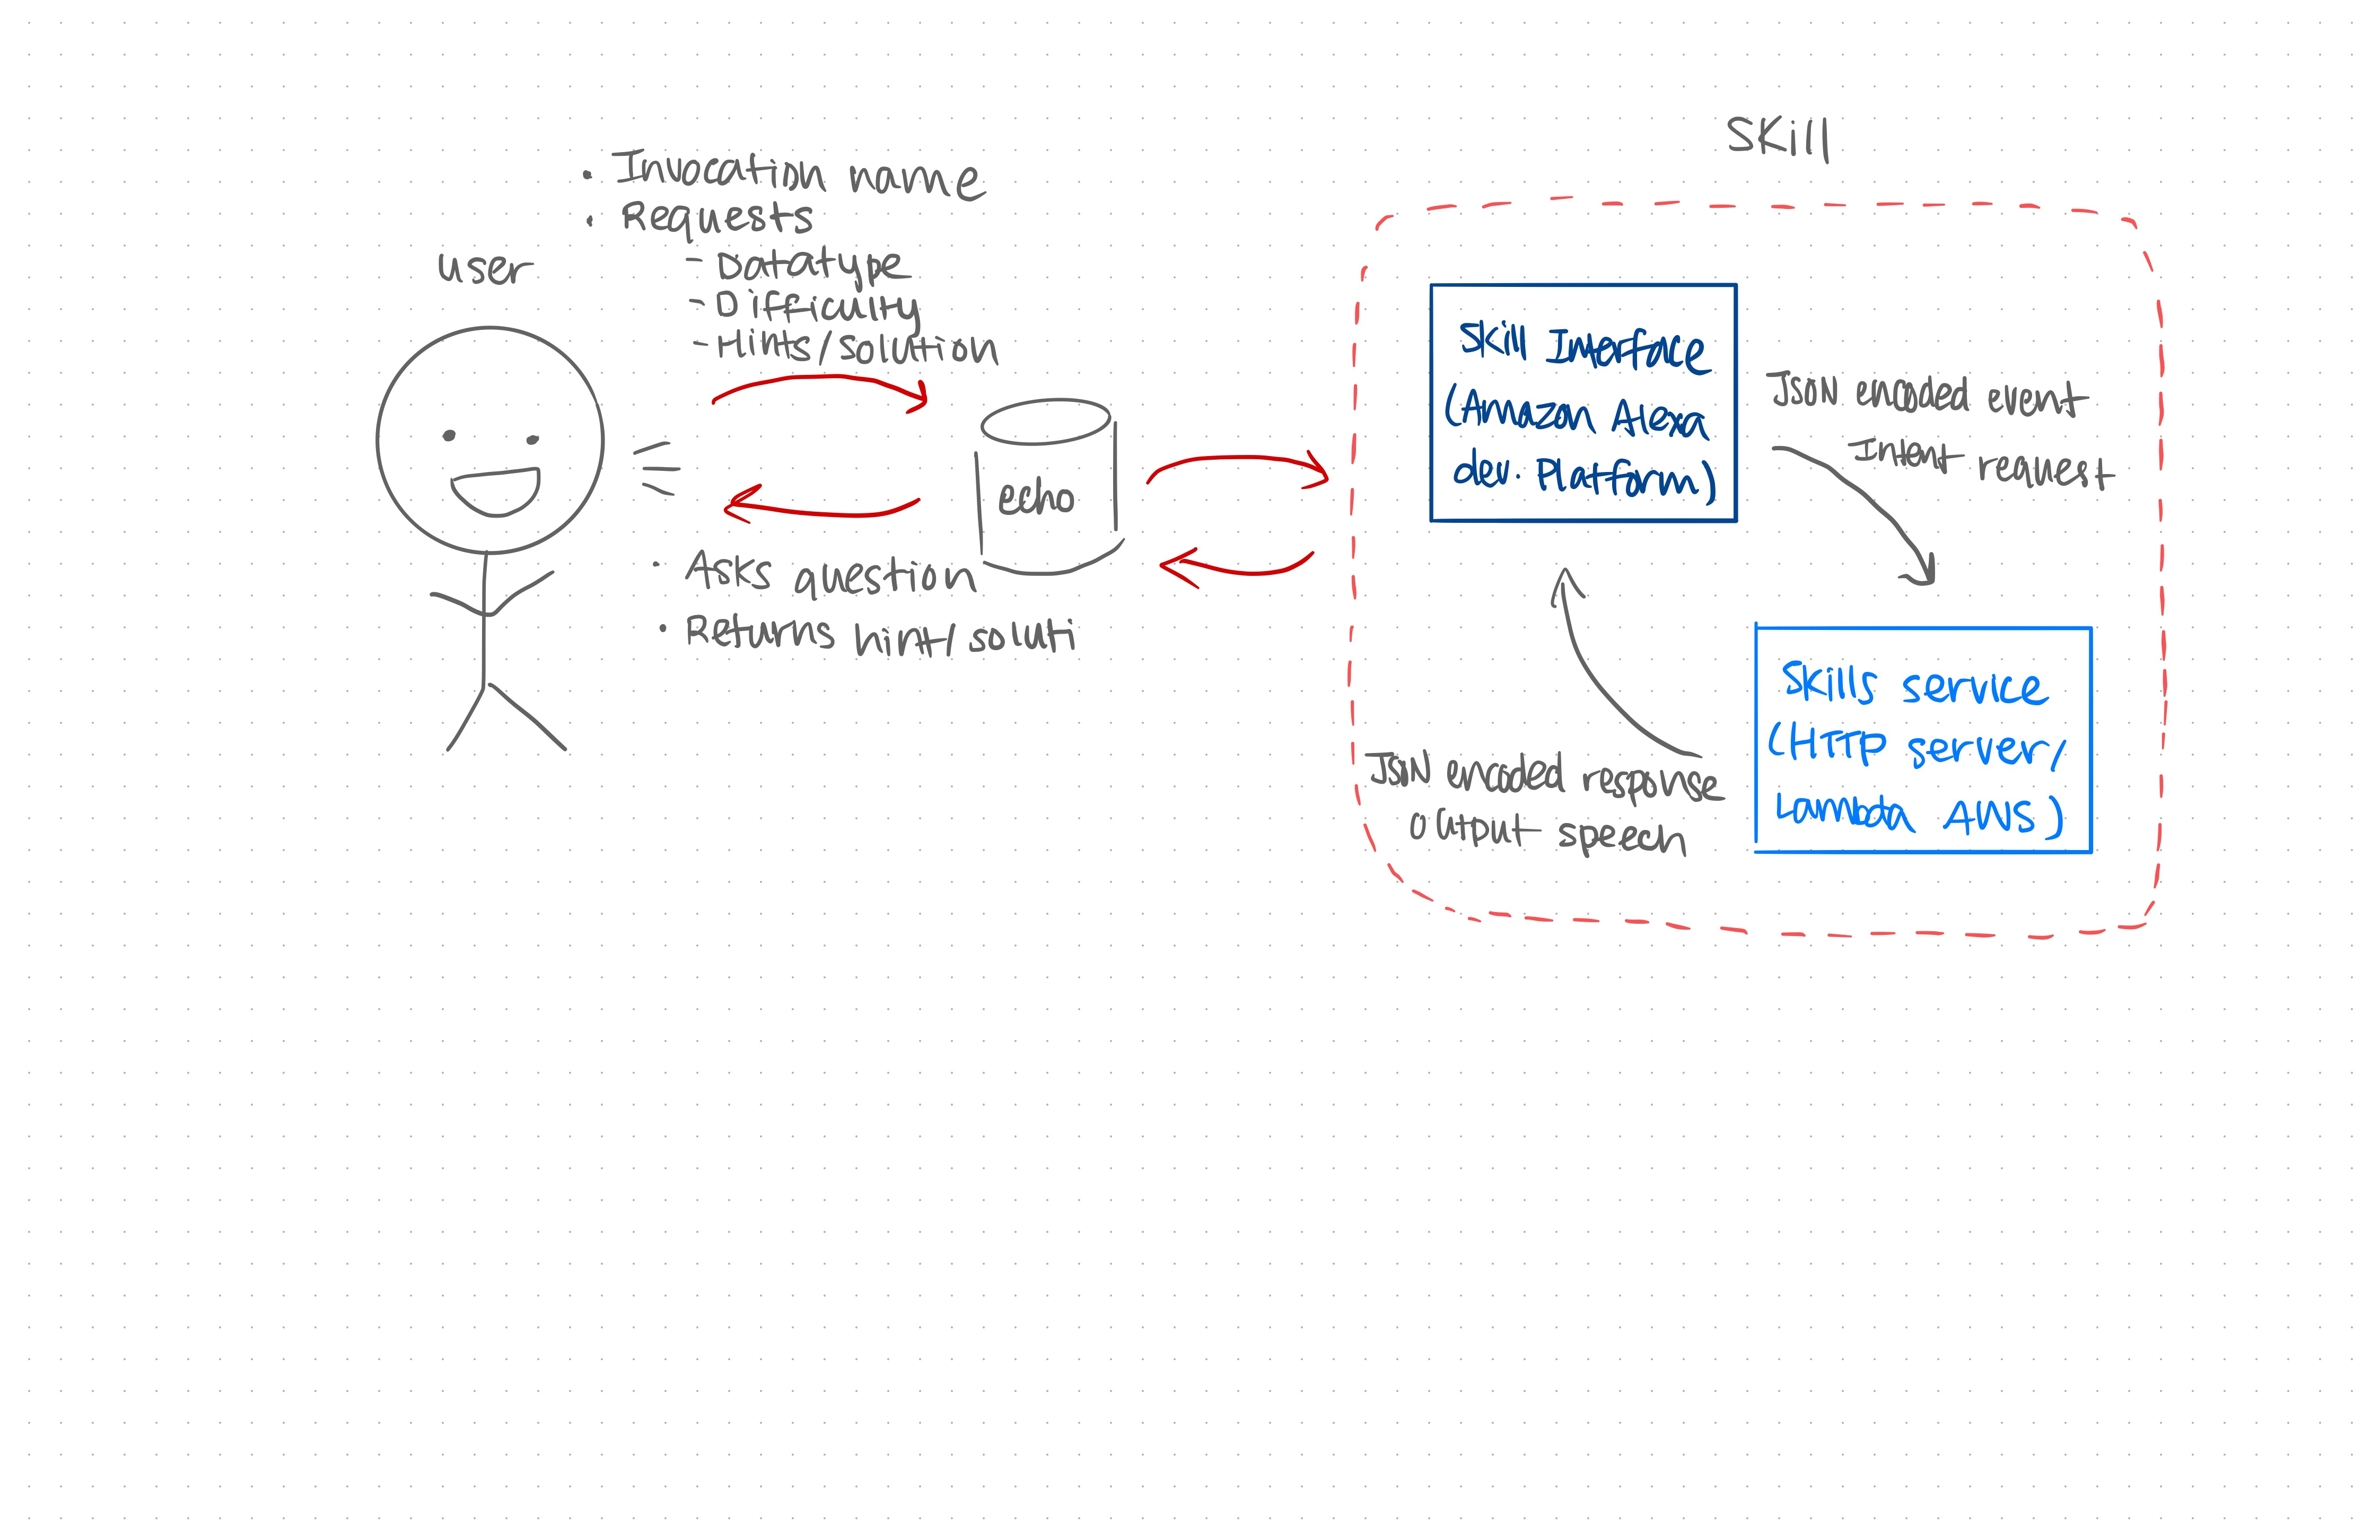 Skill
• Invocation name
• Requests
user
- Datatype
- Difficulty
- Hints/solution
echo
• Asks question
• Returns hint/soluti
Skill Interface
(Amazon Alexa
dev. Platform)
JSON encoded event
Intent request
Skills service
(HTTP server/
Lambda AWS)
JSON encoded response
output speech